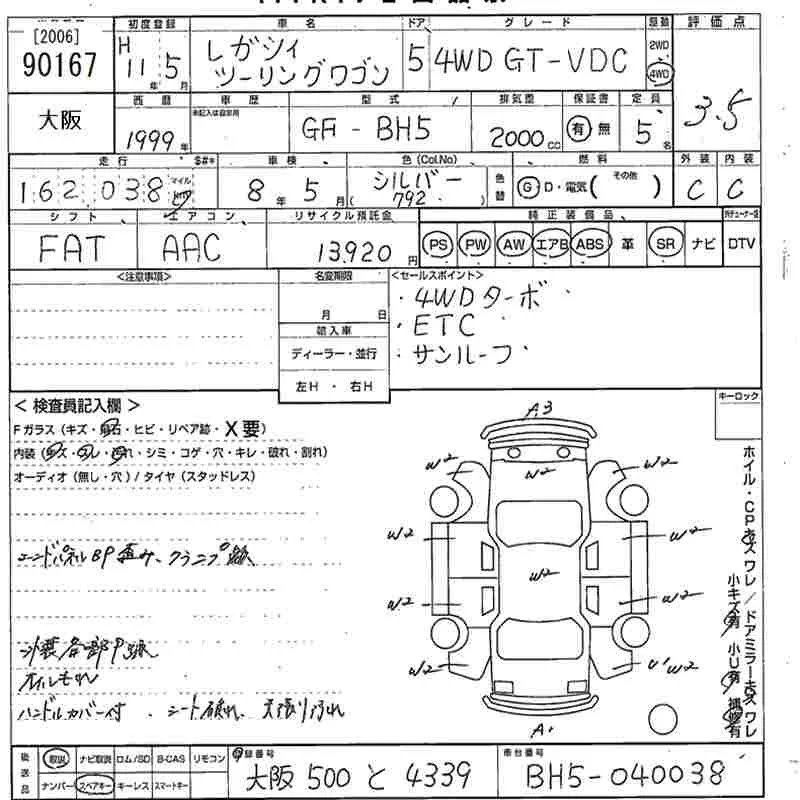 [2006]
90167
初度登録
H 11年 5月
車名
レガシィ
ツーリングワゴン
ドア
5
グレード
4WD GT-VDC
駆動
2WD
4WD
評価点
3.5
大阪
西暦
1999年
車歴
未記入は自家用
型式
GF - BH5
排気量
2000cc
保証書
有 無
定員
5名
走行
162,038
マイル
km
$#*
車検
8年 5月
色(Col.No)
シルバー
( 792 )
色替
燃料
G D・電気( その他 )
外装
C
内装
C
シフト
FAT
エアコン
AAC
リサイクル預託金
13,920円
純正装備品
PS PW AW エアB ABS 革 SR ナビ
DTV
<注意事項>
名変期限
月 日
輸入車
ディーラー・並行
左H ・ 右H
<セールスポイント>
・4WDターボ
・ETC
・サンルーフ
< 検査員記入欄 >
Fガラス (キズ・飛石・ヒビ・リペア跡・X要)
内装 (キズ・汚れ・擦れ・シミ・コゲ・穴・キレ・破れ・割れ)
オーディオ (無し・穴) / タイヤ (スタッドレス)
エンドパネルBP歪み、クランプ跡、
外装各部P跡
オイルもれ
ハンドルカバー付 、シート破れ、天張り汚れ
キーロック
A3
W2
W2
W2
W2
W2
W2
W2
W2
W2
U1 W2
A1
ホイル・CPキズワレ / ドアミラーキズワレ
小キズ有 小U有 補修有
後送品
取説 ナビ取説 ロム/SD B-CAS リモコン
ナンバー スペアキー キーレス スマートキー
登録番号
大阪 500 と 4339
車台番号
BH5-040038